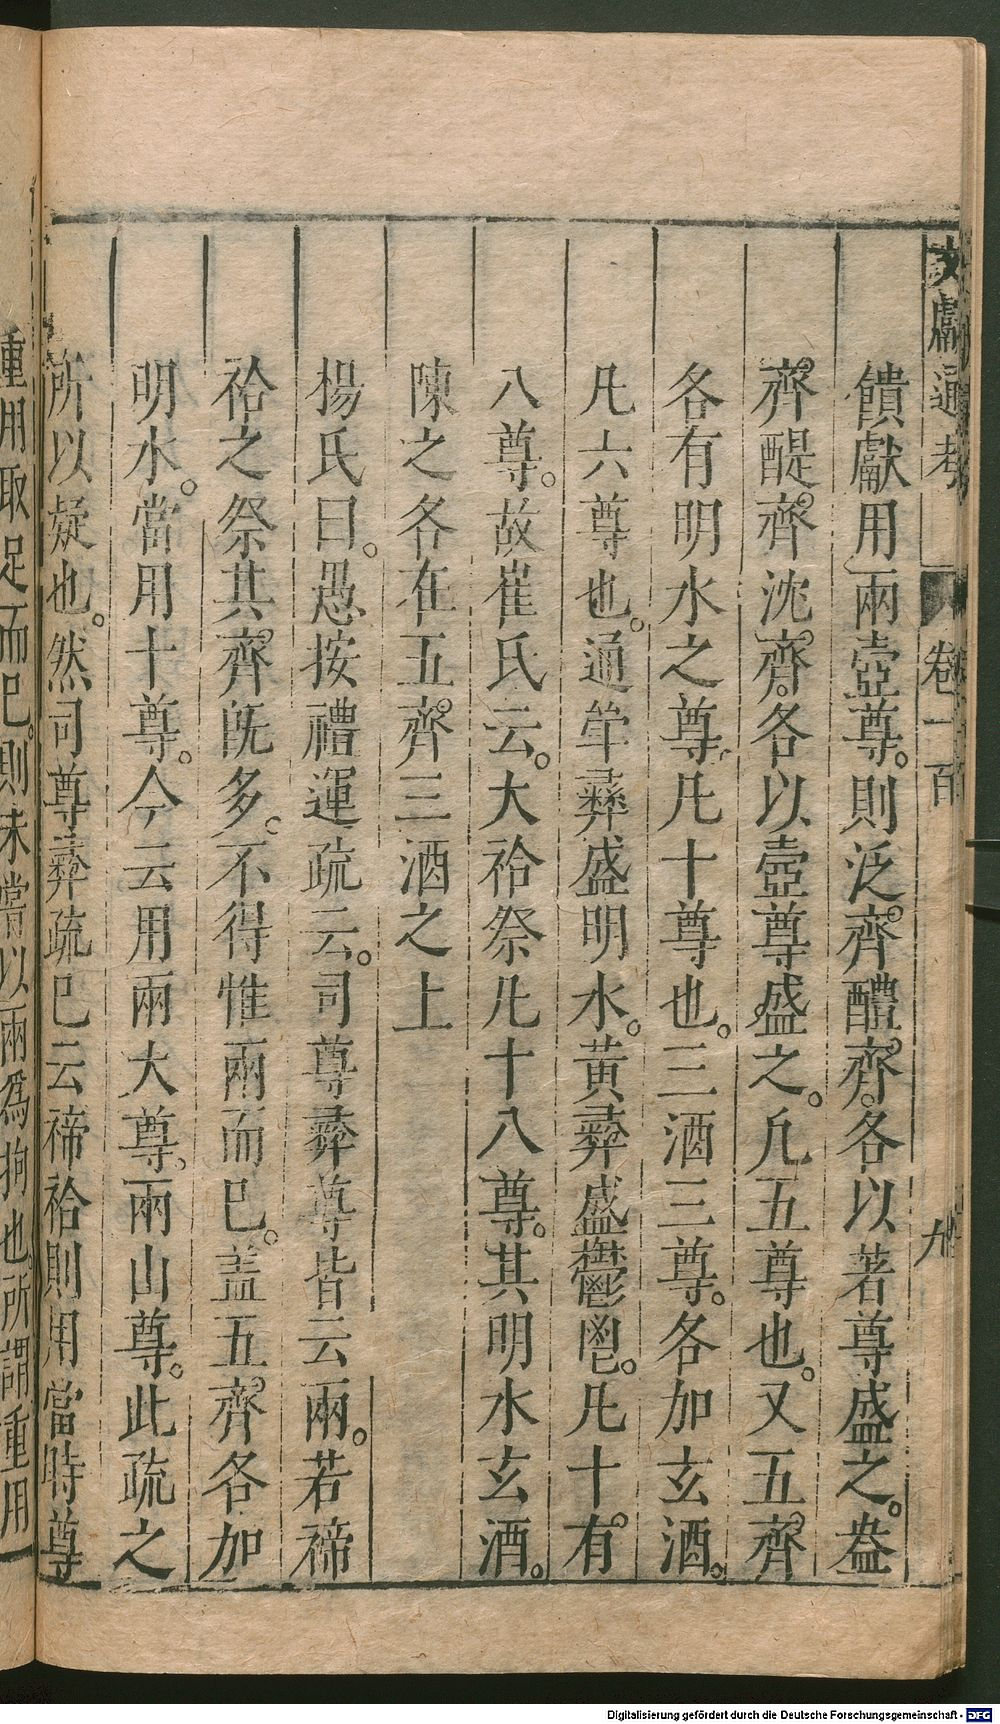 文獻通考
卷一百
九
饋獻用兩壺尊。則泛齊。醴齊。各以著尊盛之。盎
齊。醍齊。沈齊。各以壺尊盛之。凡五尊也。又五齊
各有明水之尊。凡十尊也。三酒三尊。各加玄酒。
凡六尊也。通斝彛盛明水。黃彛盛鬱鬯。凡十有
八尊。故崔氏云。大祫祭凡十八尊。其明水玄酒。
陳之各在五齊三酒之上
楊氏曰。愚按禮運疏云。司尊彛尊皆云兩。若禘
祫之祭其齊旣多。不得惟兩而已。盖五齊各加
明水。當用十尊。今云用兩大尊。兩山尊。此疏之
所以疑也。然司尊彛疏已云禘祫則用當時尊
重用取足而已。則未嘗以兩爲拘也。所謂重用
Digitalisierung gefördert durch die Deutsche Forschungsgemeinschaft - DFG